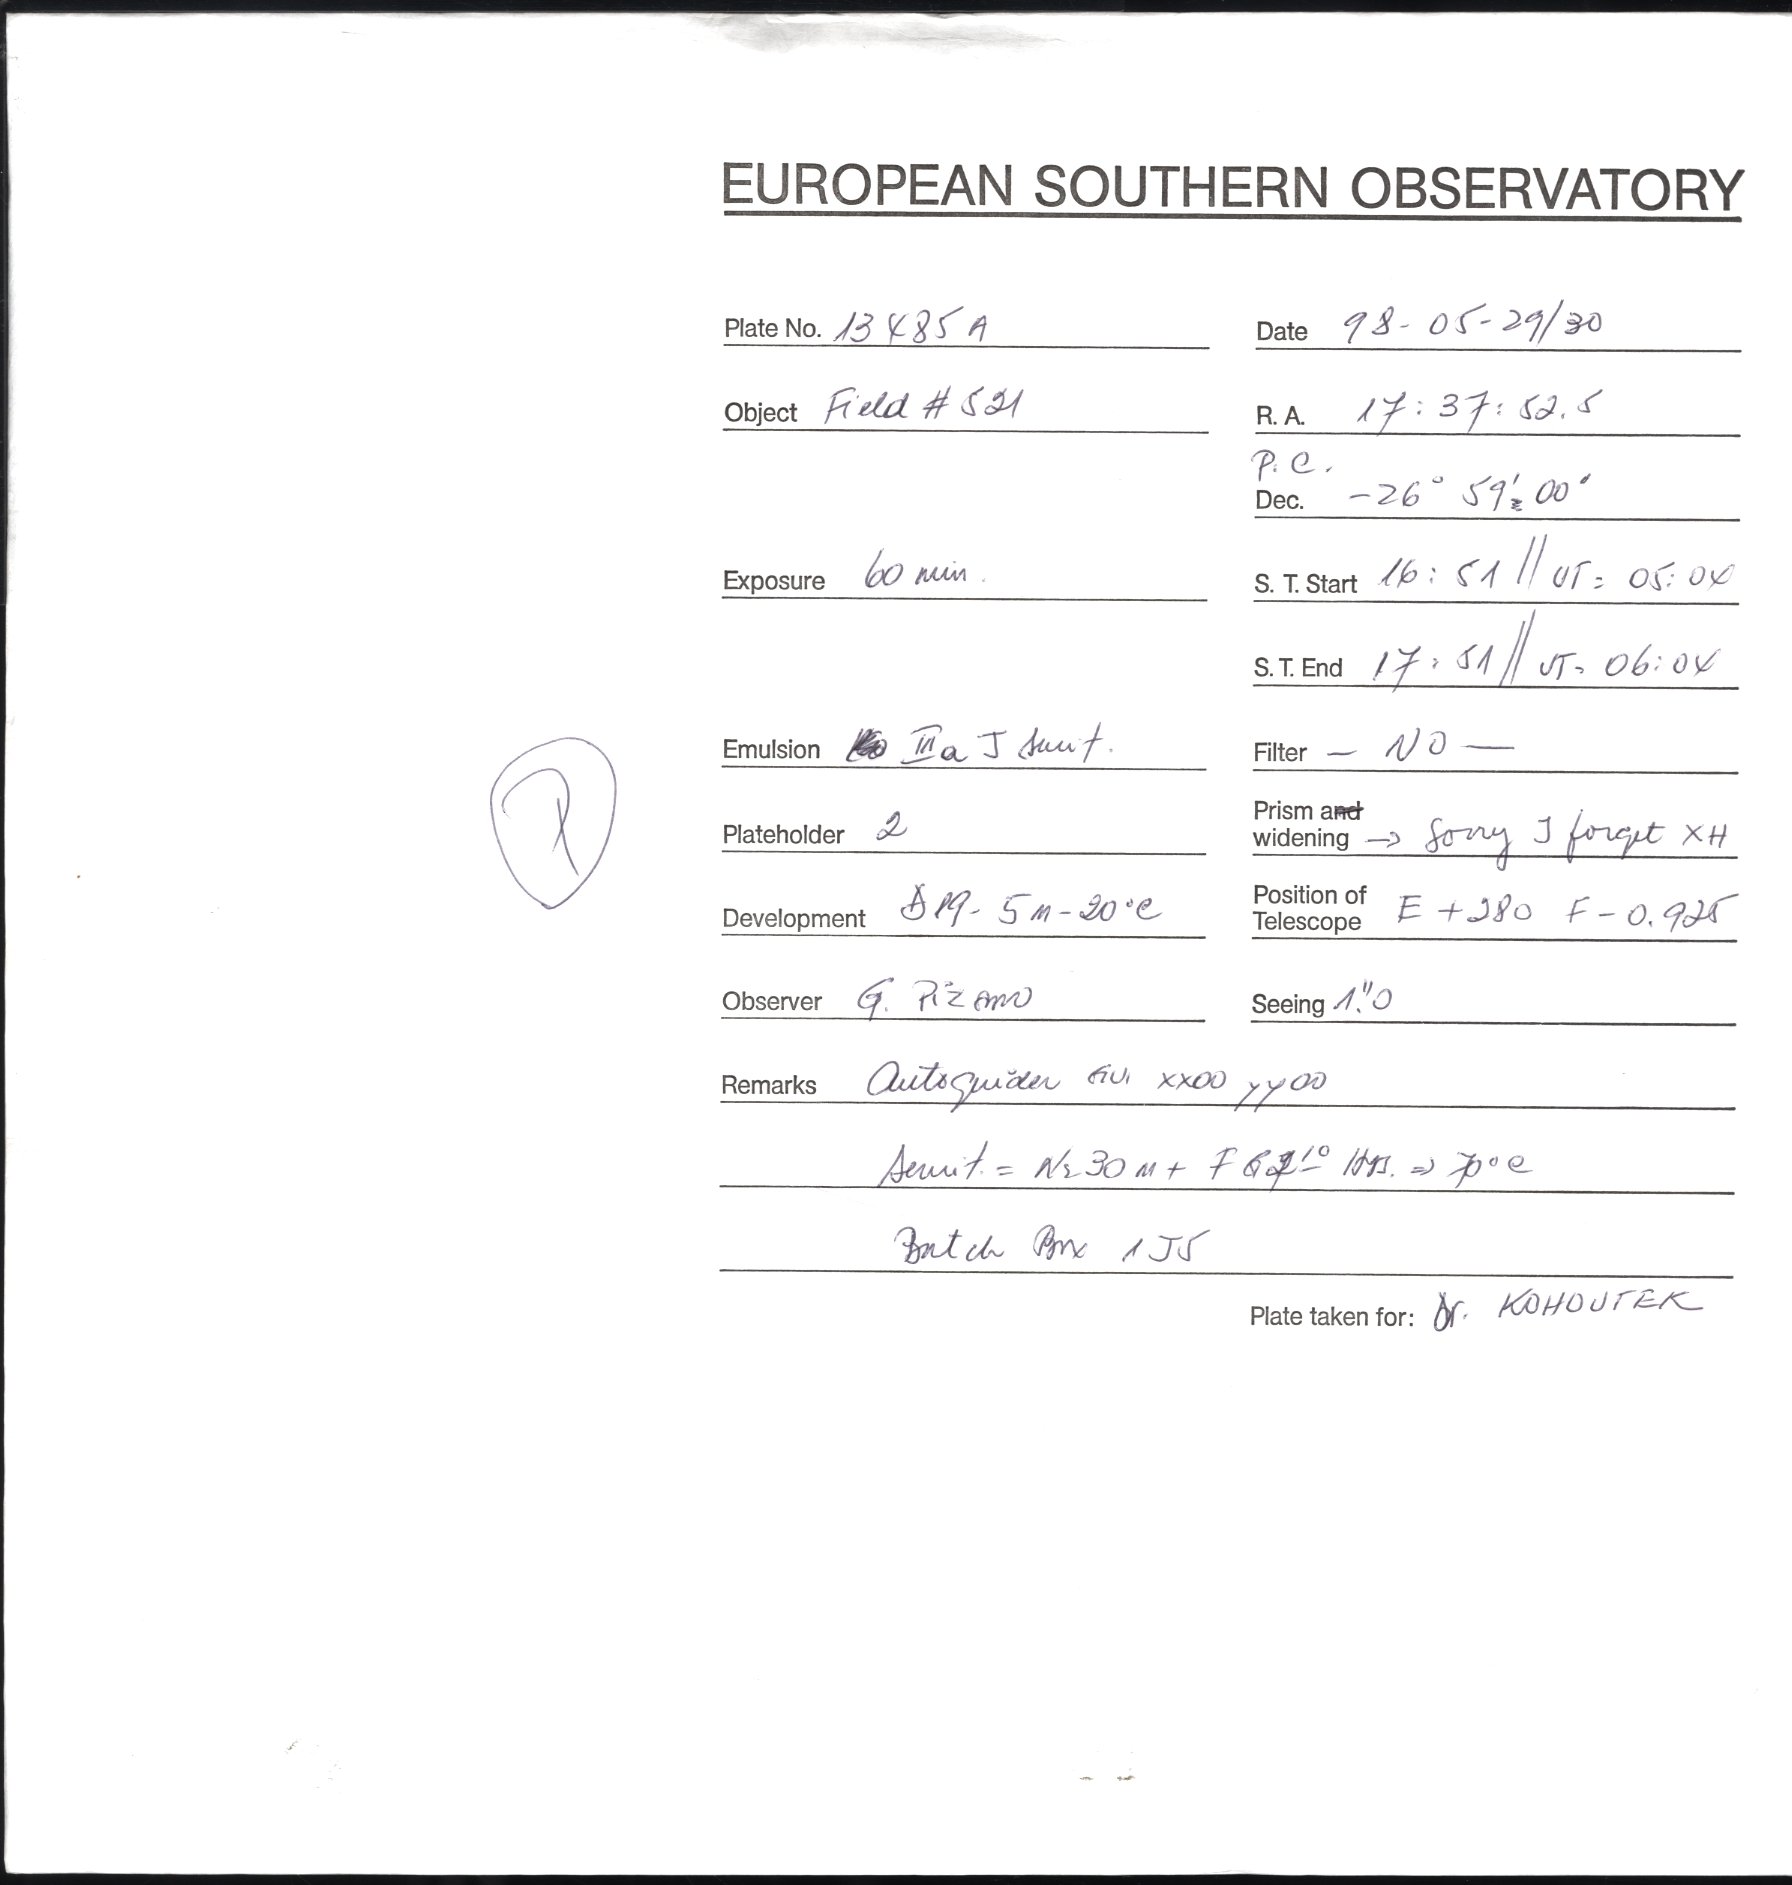 EUROPEAN SOUTHERN OBSERVATORY
Plate No. 13485 A
Date 98-05-29/30
Object Field # 521
R. A. 17:37:52.5
P.C.
Dec. -26° 59' 00"
Exposure 60 min.
S. T. Start 16:51 // UT= 05:04
S. T. End 17:51 // UT= 06:04
Emulsion III a J Sensit.
Filter - NO -
Plateholder 2
Prism and
widening → Sorry I forget XH
Development D19- 5m-20°C
Position of
Telescope E +280 F -0.925
Observer G. Pizarro
Seeing 1."0
Remarks Autoguider xx00 yy00
Sensit. = N2 30m + FG Hrs. ⇒ 70°C
Batch Box 1J5
Plate taken for: Dr. KOHOUTEK